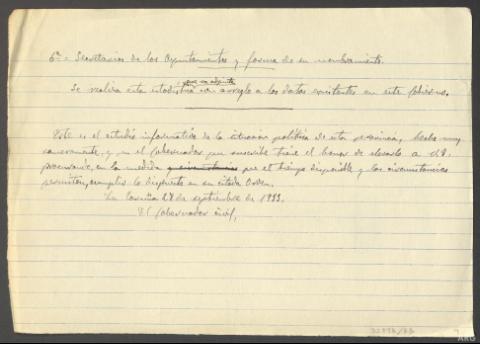 6º = Secretarios de los Ayuntamientos y forma de su nombramiento.
que se adjunta
Se realiza esta estadística con arreglo a los datos existentes en este Gobierno.
Este es el estudio informativo de la situación política de esta provincia, hecho muy
someramente, y que el Gobernador que suscribe tiene el honor de elevarlo a V.E.
procurando, en la medida que el tiempo disponible y las circunstancias
permiten, cumplir lo dispuesto en su citada Orden.
La Coruña 27 de septiembre de 1933.
El Gobernador civil,
ARG